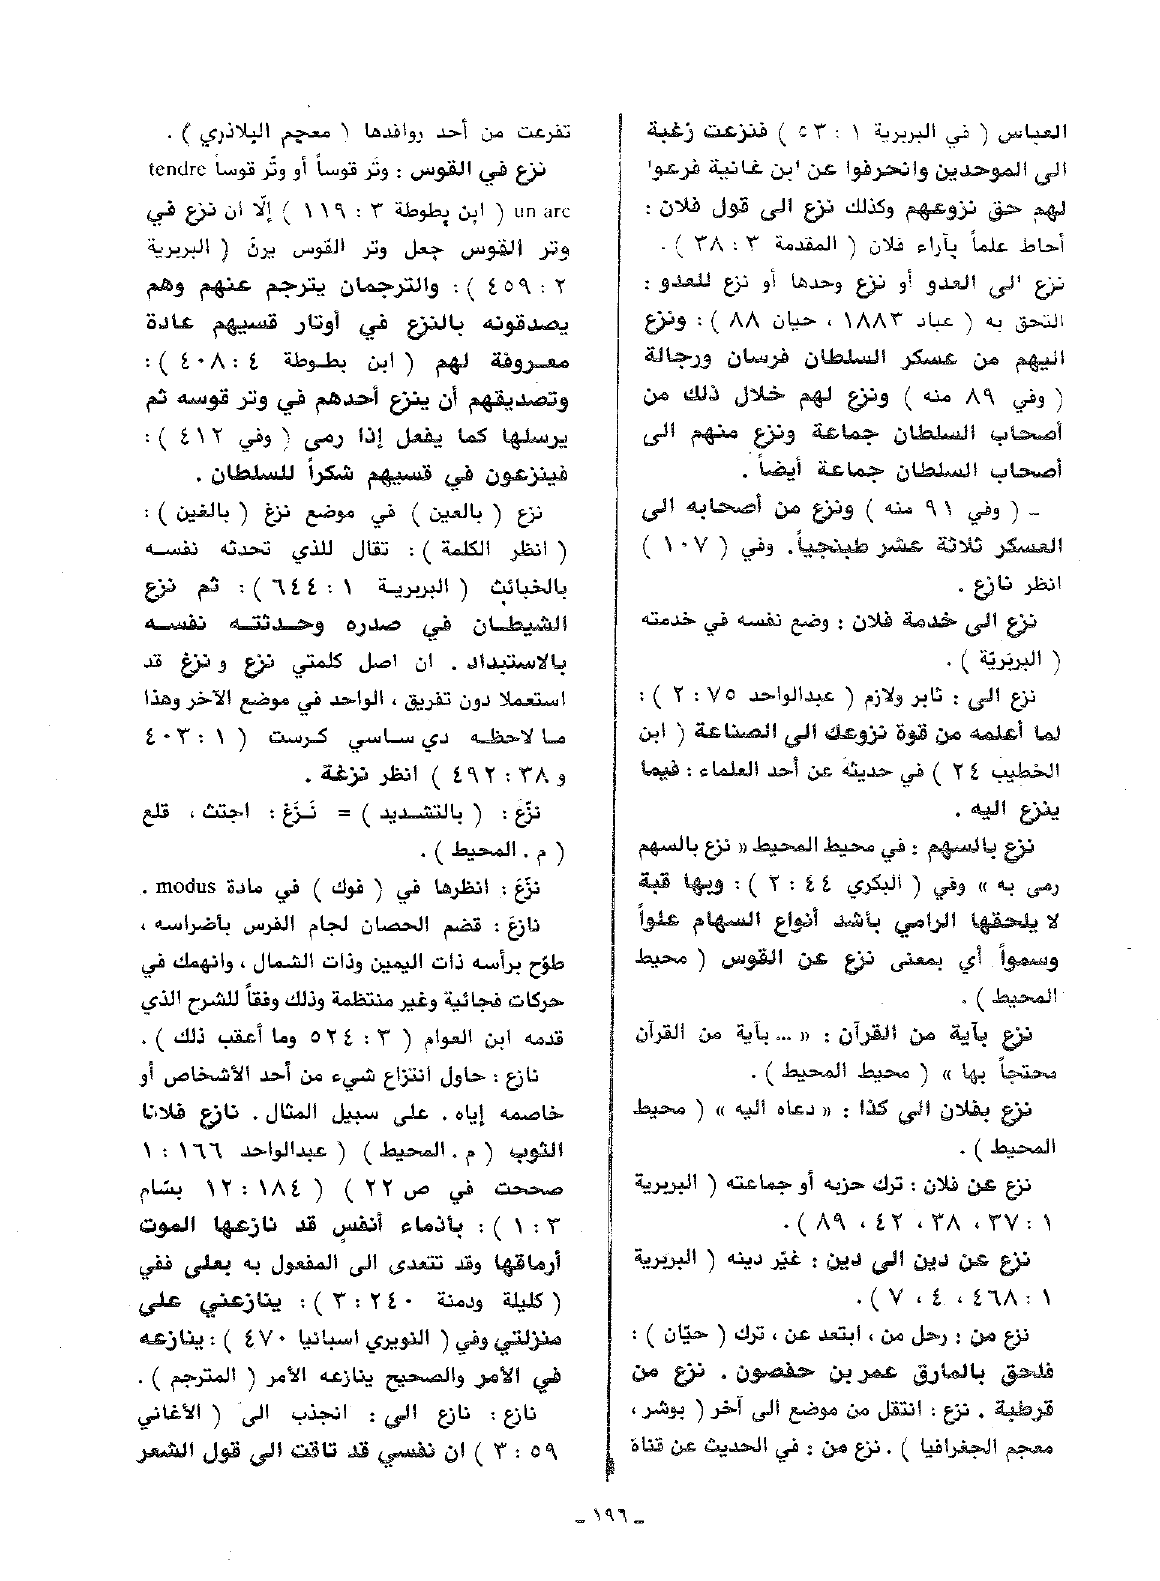 العباس ( في البربرية ١ : ٥٣ ) فنزعت زغبة
الى الموحدين وانحرفوا عن ابن غانية فرعوا
لهم حق نزوعهم وكذلك نزع الى قول فلان :
أحاط علماً بآراء فلان ( المقدمة ٣ : ٣٨ ) .
نزع الى العدو أو نزع وحدها أو نزع للعدو :
التحق به ( عباد ١٨٨٣ ، حيان ٨٨ ) : ونزع
اليهم من عسكر السلطان فرسان ورجالة
( وفي ٨٩ منه ) ونزع لهم خلال ذلك من
أصحاب السلطان جماعة ونزع منهم الى
أصحاب السلطان جماعة أيضاً .
- ( وفي ٩١ منه ) ونزع من أصحابه الى
العسكر ثلاثة عشر طبنجياً. وفي ( ١٠٧ )
انظر نازع .
نزع الى خدمة فلان : وضع نفسه في خدمته
( البربرية ) .
نزع الى : ثابر ولازم ( عبدالواحد ٧٥ : ٢ ) :
لما أعلمه من قوة نزوعك الى الصناعة ( ابن
الخطيب ٢٤ ) في حديثه عن أحد العلماء : فيما
ينزع اليه .
نزع بالسهم : في محيط المحيط « نزع بالسهم
رمى به » وفي ( البكري ٤٤ : ٢ ) : وبها قبة
لا يلحقها الرامي بأشد أنواع السهام علواً
وسمواً أي بمعنى نزع عن القوس ( محيط
المحيط ) .
نزع بآية من القرآن : « ... بآية من القرآن
محتجاً بها » ( محيط المحيط ) .
نزع بفلان الى كذا : « دعاه اليه » ( محيط
المحيط ) .
نزع عن فلان : ترك حزبه أو جماعته ( البربرية
١ : ٣٧ ، ٣٨ ، ٤٢ ، ٨٩ ) .
نزع عن دين الى دين : غيّر دينه ( البربرية
١ : ٤٦٨ ، ٤ ، ٧ ) .
نزع من : رحل من ، ابتعد عن ، ترك ( حيّان ) :
فلحق بالمارق عمر بن حفصون . نزع من
قرطبة . نزع : انتقل من موضع الى آخر ( بوشر ،
معجم الجغرافيا ) . نزع من : في الحديث عن قناة
تفرعت من أحد روافدها ( معجم البلاذري ) .
نزع في القوس : وتر قوساً أو وتّر قوساً tendre
un arc ( ابن بطوطة ٣ : ١١٩ ) إلّا ان نزع في
وتر القوس جعل وتر القوس يرنّ ( البربرية
٢ : ٤٥٩ ) : والترجمان يترجم عنهم وهم
يصدقونه بالنزع في أوتار قسيهم عادة
معروفة لهم ( ابن بطوطة ٤ : ٤٠٨ ) :
وتصديقهم أن ينزع أحدهم في وتر قوسه ثم
يرسلها كما يفعل إذا رمى ( وفي ٤١٢ ) :
فينزعون في قسيهم شكراً للسلطان .
نزع ( بالعين ) في موضع نزغ ( بالغين ) :
( انظر الكلمة ) : تقال للذي تحدثه نفسه
بالخبائث ( البربرية ١ : ٦٤٤ ) : ثم نزع
الشيطان في صدره وحدثته نفسه
بالاستبداد . ان اصل كلمتي نزع و نزغ قد
استعملا دون تفريق ، الواحد في موضع الآخر وهذا
ما لاحظه دي ساسي كرست ( ١ : ٤٠٣
و ٣٨ : ٤٩٢ ) انظر نزغة .
نزّع : ( بالتشديد ) = نَزَعَ : اجتث ، قلع
( م . المحيط ) .
نزّعَ : انظرها في ( فوك ) في مادة modus .
نازعَ : قضم الحصان لجام الفرس بأضراسه ،
طوّح برأسه ذات اليمين وذات الشمال ، وانهمك في
حركات فجائية وغير منتظمة وذلك وفقاً للشرح الذي
قدمه ابن العوام ( ٣ : ٥٢٤ وما أعقب ذلك ) .
نازع : حاول انتزاع شيء من أحد الأشخاص أو
خاصمه إياه . على سبيل المثال . نازع فلانا
الثوب ( م . المحيط ) ( عبدالواحد ١٦٦ : ١
صححت في ص ٢٢ ) ( ١٨٤ : ١٢ بسّام
٣ : ١ ) : بأذماء أنفس قد نازعها الموت
أرماقها وقد تتعدى الى المفعول به بعلى ففي
( كليلة ودمنة ٢٤٠ : ٣ ) : ينازعني على
منزلتي وفي ( النويري اسبانيا ٤٧٠ ) : ينازعه
في الأمر والصحيح ينازعه الأمر ( المترجم ) .
نازع : نازع الى : انجذب الى ( الأغاني
٥٩ : ٣ ) ان نفسي قد تاقت الى قول الشعر
- ١٩٦ -